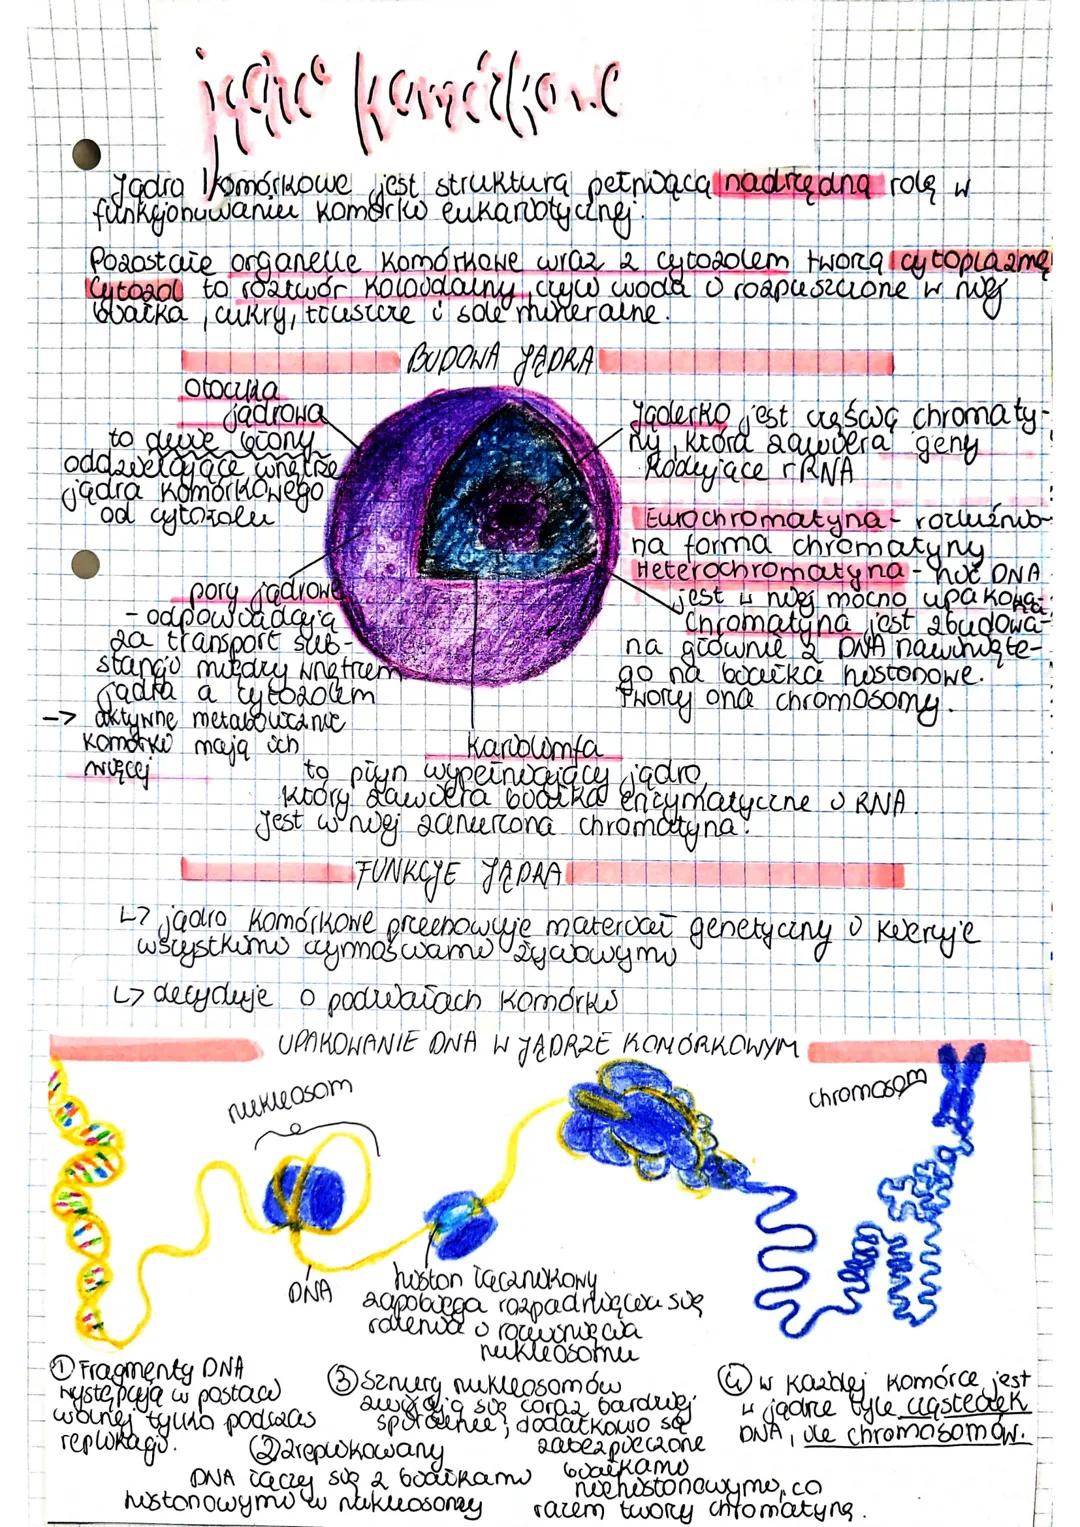 jądro komórkowe
Jądro komórkowe jest strukturą pełniącą nadrzędną rolę w
funkcjonowaniu komórki eukariotycznej.
Pozostałe organelle komórkowe wraz z cytozolem tworzą cytoplazmę
Cytozol to roztwór koloidalny, czyli woda i rozpuszczone w niej
białka, cukry, tłuszcze i sole mineralne.
BUDOWA JĄDRA
Otoczka
jądrowa
to dwie błony
oddzielające wnętrze
jądra komórkowego
od cytozolu
pory jądrowe
- odpowiadają
za transport sub-
stancji między wnętrzem
jądra a cytozolem
-> aktywne metabolicznie
komórki mają ich
więcej
Jąderko jest częścią chromaty-
ny, która zawiera geny
kodujące rRNA
Eurochromatyna - rozluźnio-
na forma chromatyny
Heterochromatyna - nić DNA
jest w niej mocno upakowana
Chromatyna jest zbudowa-
na głównie z DNA nawinięte-
go na białka histonowe.
Tworzy ona chromosomy.
Kariolimfa
to płyn wypełniający jądro,
który zawiera białka enzymatyczne i RNA.
Jest w niej zanurzona chromatyna.
FUNKCJE JĄDRA
↳ jądro komórkowe przechowuje materiał genetyczny i kieruje
wszystkimi czynnościami życiowymi
↳ decyduje o podziałach komórki
UPAKOWANIE DNA W JĄDRZE KOMÓRKOWYM
nukleosom
chromosom
DNA
histon łącznikowy
zapobiega rozpadnięciu się
rdzenia i rozwinięcia
nukleosomu
① Fragmenty DNA
występują w postaci
wolnej tylko podczas
replikacji.
② zreplikowany
DNA łączy się z białkami
histonowymi w nukleosomy
③ Sznury nukleosomów
zwijają się coraz bardziej
spiralnie; dodatkowo są
zabezpieczone
białkami
niehistonowymi, co
razem tworzy chromatynę.
④ w każdej komórce jest
w jądrze tyle cząsteczek
DNA, ile chromosomów.